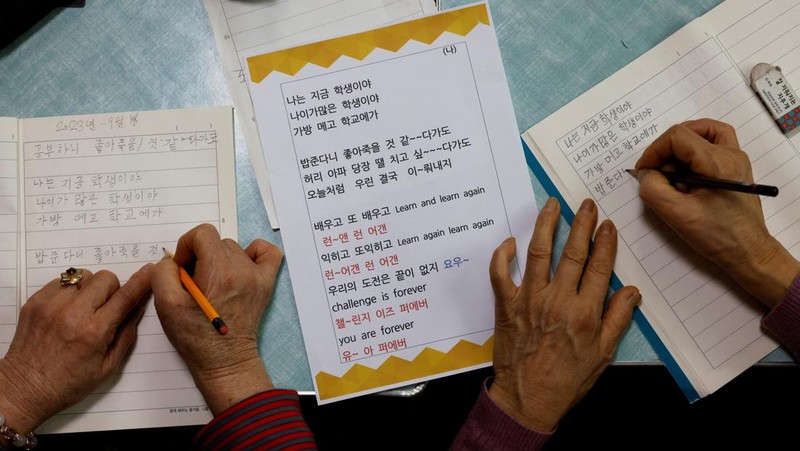 2023년
공부하니 좋아죽을 것 같~다가도
나는 지금 학생이야
나이가 많은 학생이야
가방 메고 학교예가
밥준다니 좋아죽을 것
(나)
나는 지금 학생이야
나이가많은 학생이야
가방 메고 학교예가
밥준다니 좋아죽을 것 같~~다가도
허리 아파 당장 땔 치고 싶~~~다가도
오늘처럼 우린 결국 이~뤄내지
배우고 또 배우고 Learn and learn again
런~앤 런 어갠
익히고 또익히고 Learn again learn again
런~어갠 런 어갠
우리의 도전은 끝이 없지 요우~
challenge is forever
챌~린지 이즈 퍼에버
you are forever
유~ 아 퍼에버
나는 지금 학생이야
나이가많은 학생이야
가방 메고 학교예가
밥준다